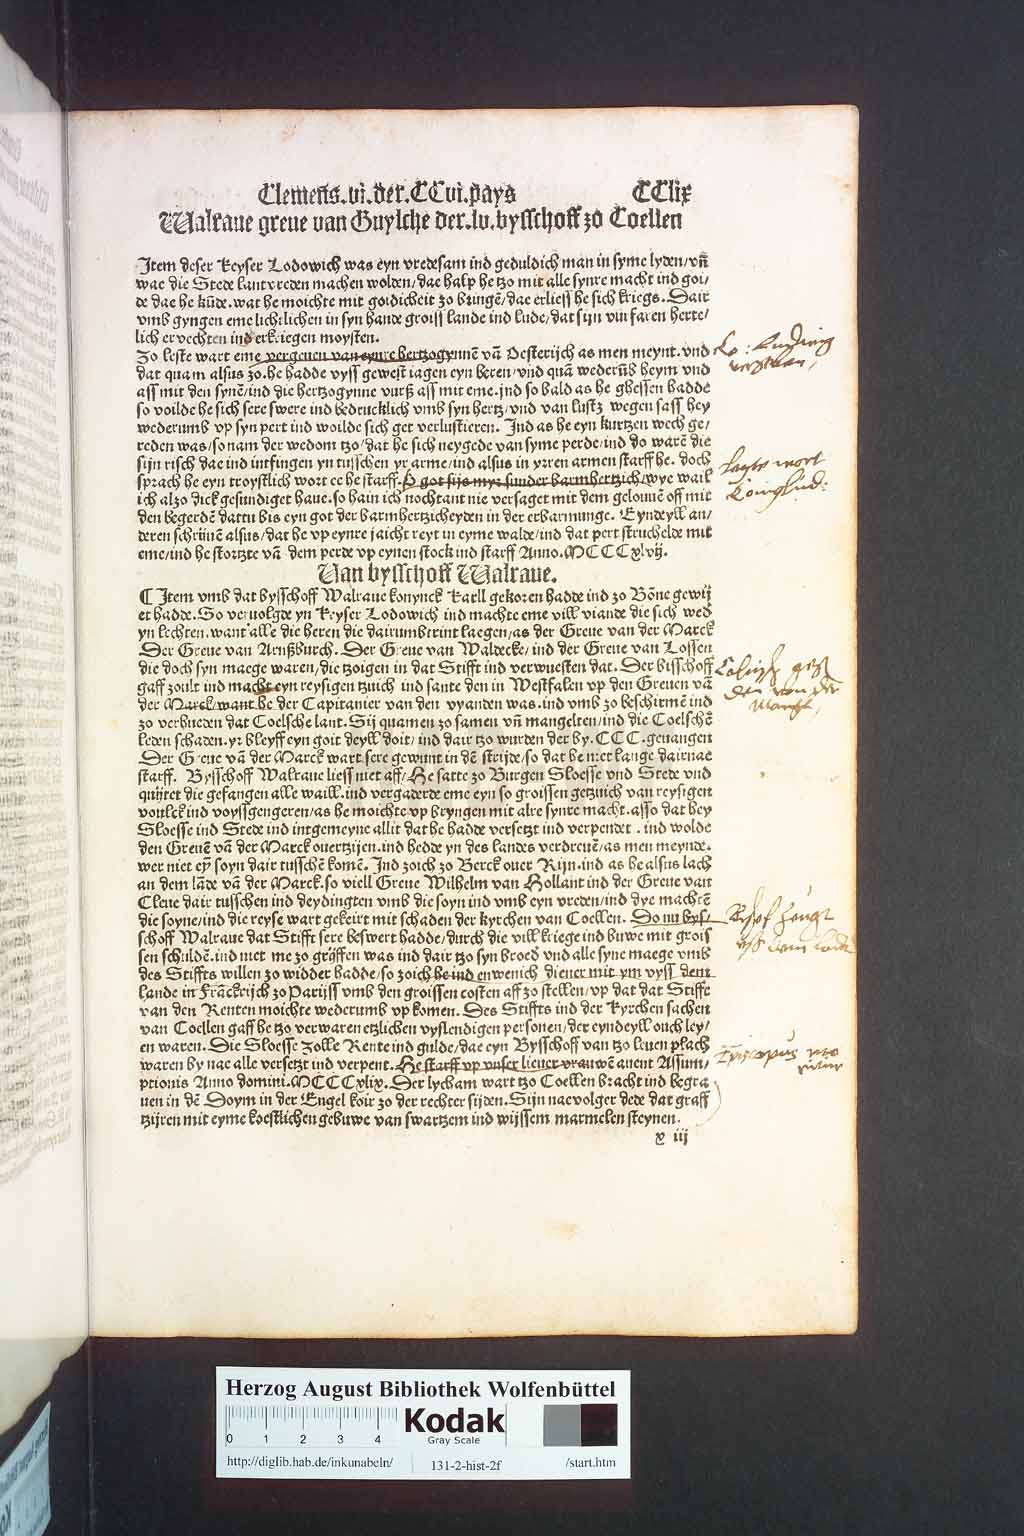 Clemens.vi.der.CCvi.pays CClix
Walraue greue van Guylche der.lv.bysschoff zo Coellen
Item deser Keyser Lodowich was eyn vredesam ind geduldich man in syme lyden/vn̄
wae die Stede lantvreden machen wolden/dae halp he tzo mit alle synre macht ind goi/
de dae he kūde.wat he moichte mit goidicheit zo bringē/dae erliess he sich kriegs. Dair
vmb gyngen eme lichtlichen in syn hande groiss lande ind lude/dat sijn vurfaren herte/
lich ervechten ind erkriegen moysten.
Zo leste wart eme vergeuen van eynre hertzogynnē vā Oesterijch as men meynt.vnd
dat quam alsus zo.he hadde vyss geweist iagen eyn beren/vnd quā wederūb heym vnd
ass mit den synē/ind die hertzogynne vurß ass mit eme.ind so bald as he ghessen hadde
so voilde he sich sere swere ind bedrucklich vmb syn hertz/vnd van lustz wegen sass hey
wederumb vp syn pert ind woilde sich get verlustieren. Ind as he eyn kurtzen wech ge/
reden was/so nam der wedom tzo/dat he sich neygede van syme perde/ind do warē die
sijn risch dae ind intfingen yn tusschen yr arme/ind alsus in yrren armen starff he. doch
sprach he eyn troystlich wort ee he starff.O got sijs myr sunder barmhertzich/wye wail
ich alzo dick gesundiget haue.so hain ich nochtant nie versaget mit dem gelouuē off mit
den begerdē dattu bis eyn got der barmhertzicheyden in der erbarmunge. Eyndeyll an/
deren schrijuē alsus/dat he vp eynre jaicht reyt in eyme walde/ind dat pert struchelde mit
eme/ind he stortzte vā dem perde vp eynen stock ind starff Anno.MCCCxlvij.
Van bysschoff Walraue.
¶ Item vmb dat bysschoff Walraue konynck Karll gekoren hadde ind zo Bōne gewij
et hadde. So vervolgde yn Keyser Lodowich ind machte eme vill viande die sich wed
yn lechten.want alle die heren die dairumbtrint laegen/as der Greue van der Marck
Der Greue van Arnßburch. Der Greue van Waldecke/ind der Greue van Lossen
die doch syn maege waren/die tzoigen in dat Stifft ind verwuesten dat. Der bisschoff
gaff zoult ind macht eyn reysigen tzuich ind sante den in Westfalen vp den Greuen vā
der Marck/want he der Capitanier van den vyanden was.ind vmb zo beschirmē ind
zo verhueden dat Coelsche lant. Sij quamen zo samen vn̄ mangelten/ind die Coelschē
leden schaden.yr bleyff eyn goit deyll doit/ind dair tzo wurden der by.CCC.geuangen
Der Greue vā der Marck wart sere gewunt in dē strijde/so dat he niet lange dairnae
starff. Bysschoff Walraue liess niet aff/He satte zo Burgen Sloesse vnd Stede vnd
quijtet die gefangen alle waill.ind vergaderde eme eyn so groissen getzuich van reysigen
voulck ind voyssgengeren/as he moichte vp bryngen mit alre synre macht.asso dat hey
Sloesse ind Stede ind intgemeyne allit dat he hadde versetzt ind verpendet. ind wolde
den Greuē vā der Marck ouertzijen.ind hedde yn des landes verdreuē/as men meynde.
wer niet eȳ soyn dair tusschē komē. Ind zoich zo Berck ouer Rijn.ind as he alsus lach
an dem lāde vā der Marck.so viell Greue Wilhelm van Hollant ind der Greue van
Cleue dair tusschen ind deydingten vmb die soyn ind vmb eyn vreden/ind dye machtē
die soyne/ind die reyse wart gekeirt mit schaden der kyrchen van Coellen. So nu bys/
schoff Walraue dat Stifft sere beswert hadde/durch die vill kriege ind buwe mit grois
sen schuldē.ind niet me zo grijffen was ind dair tzo syn broed vnd alle syne maege vmb
des Stiffts willen zo widder hadde/so zoich he ind en wenich diener mit ym vyss dem
lande in Frāckrijch zo Parijss vmb den groissen costen aff zo stellen/vp dat dat Stifft
van den Renten moichte wederumb vp komen. Des Stiffts ind der Kyrchen sachen
van Coellen gaff he tzo verwaren etzlichen vyslendigen personen/der eyndeyll ouch ley/
en waren. Die Sloesse Zolle Rente ind gulde/dae eyn Bysschoff van tzo leuen plach
waren by nae alle versetzt ind verpent. He starff vp vnser lieuer vrauwē auent Assum/
ptionis Anno domini.MCCCxlix. Der lycham wart tzo Coellen bracht ind begra
uen in dē Doym in der Engel koir zo der rechter sijden. Sijn naevolger dede dat graff
tzijren mit eyme koestlichen gebuwe van swartzem ind wijssem marmelen steynen.
x iij
Herzog August Bibliothek Wolfenbüttel
0 1 2 3 4
Kodak
Gray Scale
http://diglib.hab.de/inkunabeln/ 131-2-hist-2f /start.htm